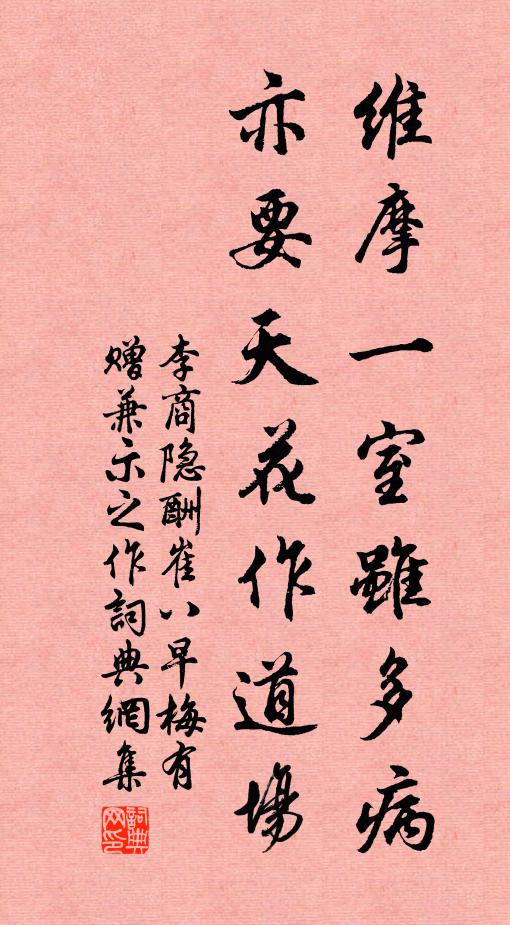 維摩一室雖多病
亦要天花作道場
李商隐酬崔八早梅有
赠兼示之作詞典網集
詞典网印